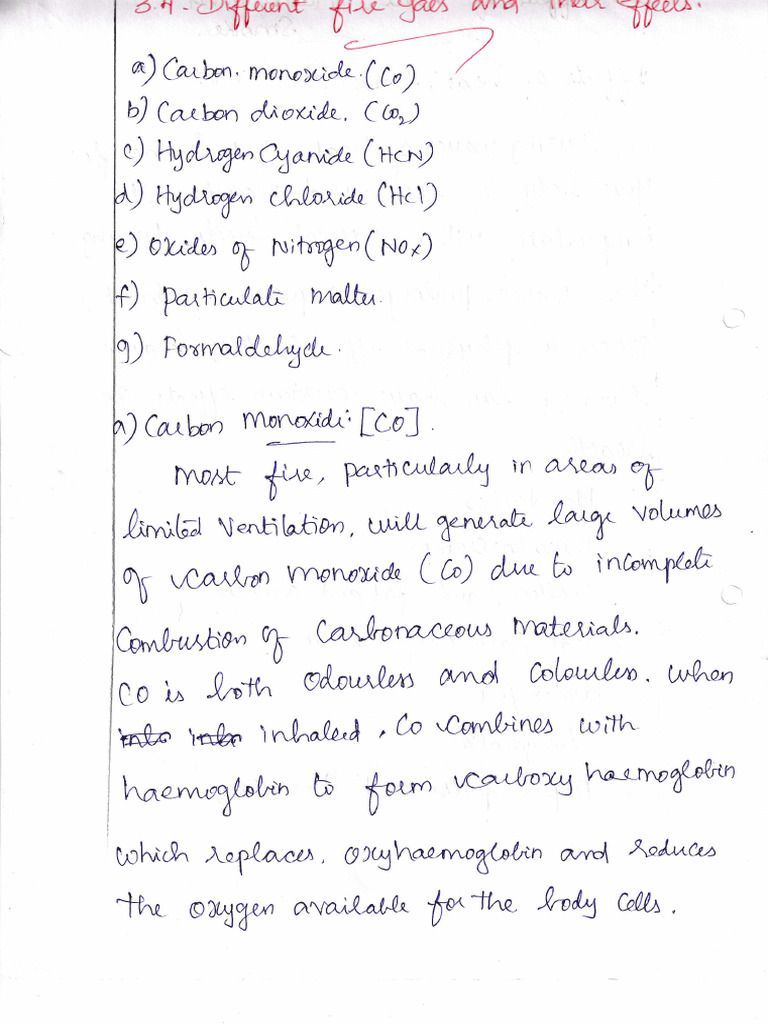 3.4. Different fire gaes and their effects.
a) Carbon. monoxide. (CO)
b) Carbon dioxide. (CO₂)
c) Hydrogen Cyanide (HCN)
d) Hydrogen chloride (HCl)
e) Oxides of Nitrogen (NOx)
f) Particulate matter.
g) Formaldehyde.
a) Carbon Monoxide: [CO].
Most fire, particularly in areas of
limited Ventilation, will generate large volumes
of carbon monoxide (CO) due to incomplete
Combustion of Carbonaceous Materials.
CO is both Odourless and Colourless. When
into into inhaled, CO combines with
haemoglobin to form carboxy haemoglobin
which replaces, oxyhaemoglobin and reduces
the oxygen available for the body cells.